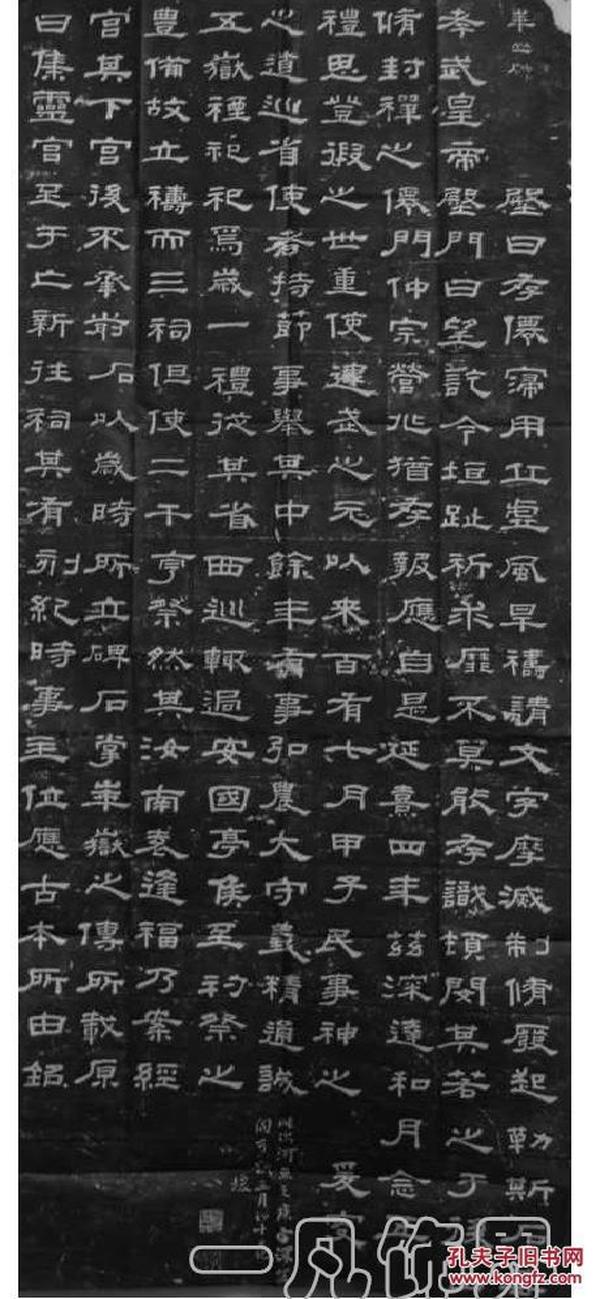 華山碑
壂曰存僊用丘虛風旱禱請文字摩滅制脩廢起勒斯石
孝武皇帝壂門曰望訖今垣趾祈求靡不莫能存識頊閔其若之于
脩封禪之僊門仲宗營兆猶存報應自是延熹四年茲深達和月念
禮思登徦之世重使建武之元以來百有七月甲子民事神之爰
之道巡省使者持節事舉其中餘年有事弘農大守義精通誠
五嶽禋祀祀焉歲一禮從其省西巡輒過安國亭侯至礿祭之
豊備故立禱而三祠但使二千亨祭然其汝南袁逢福乃案經
宮其下宮後不承前石以歲時所立碑石掌華嶽之傳所載原
曰集靈宮至于亡新往祠其有刻紀時事至位應古本所由銘
一凡饰界
孔夫子旧书网
www.kongfz.com